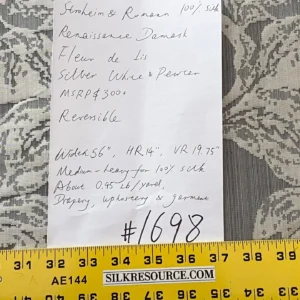 Stroheim & Romann 100% silk
Renaissance Damask
Fleur de Lis
Silver White & Pewter
MSRP $300+
Reversible
Width 56", HR 14", VR 19.75"
Medium-heavy for 100% silk
About 0.45 lb/yard,
Drapery, upholstery & garment
#1698
31 32 33 34 35 36 37 38 39 40 41
AE144 SILKRESOURCE.COM